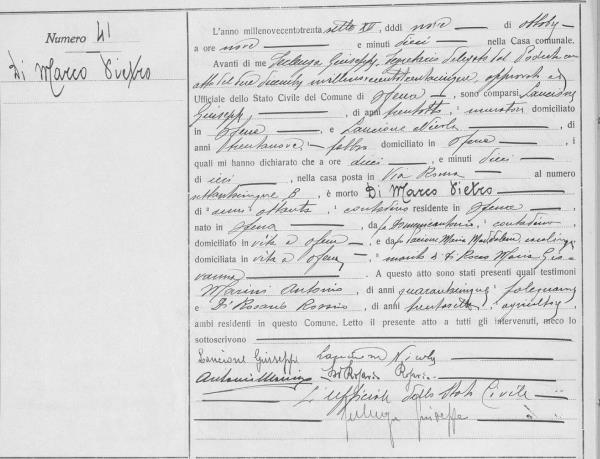 Numero 41
Di Marco Pietro
L'anno millenovecentotrenta sette XV, dddì nove di
a ore nove e minuti dieci nella Casa comunale.
Avanti di me Giuseppe, Segretario delegato dal Podestà con
atto del due millenovecento approvato
Ufficiale dello Stato Civile del Comune di Ofena, sono comparsi Lancione
Giuseppe, di anni trentotto, muratore domiciliato
in Ofena e Lancione Nicola, di
anni trentanove fabbro domiciliato in Ofena, i
quali mi hanno dichiarato che a ore dieci e minuti dieci
di ieri, nella casa posta in Via Roma al numero
settantacinque B, è morto Di Marco Pietro
di anni ottanta, contadino residente in Ofena
nato in Ofena da fu Domenicantonio, contadino
domiciliato in vita a Ofena e da fu Maria Maddalena, casalinga
domiciliata in vita a Ofena, marito di Di Rocco Maria Gio
vanna A questo atto sono stati presenti quali testimoni
Marini Antonio, di anni quarantacinque, falegname
e Di Rosario Rosario, di anni, agricoltore
ambi residenti in questo Comune. Letto il presente atto a tutti gli intervenuti, meco lo
sottoscrivono
Lancione Giuseppe Lancione Nicola
Antonio Marini Di Rosario
L'ufficiale dello Stato Civile
Giuseppe